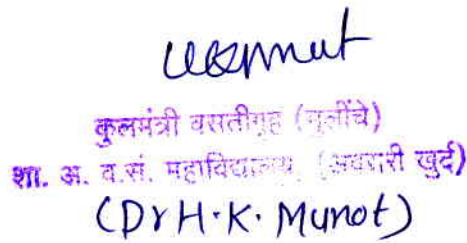 कुलमंत्री वसतीगृह (मुलींचे)
शा. अ. व.सं. महाविद्यालय, खुर्द)
(Dr H.K. Munot)